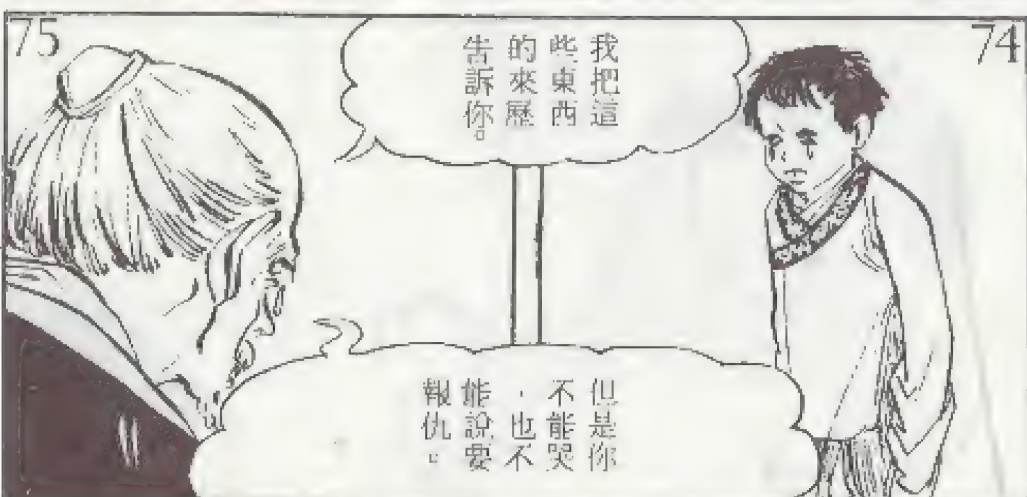 74
75
我把這
些東西
的來歷
告訴你。
但是你
不能哭
，也不
能說要
報仇。